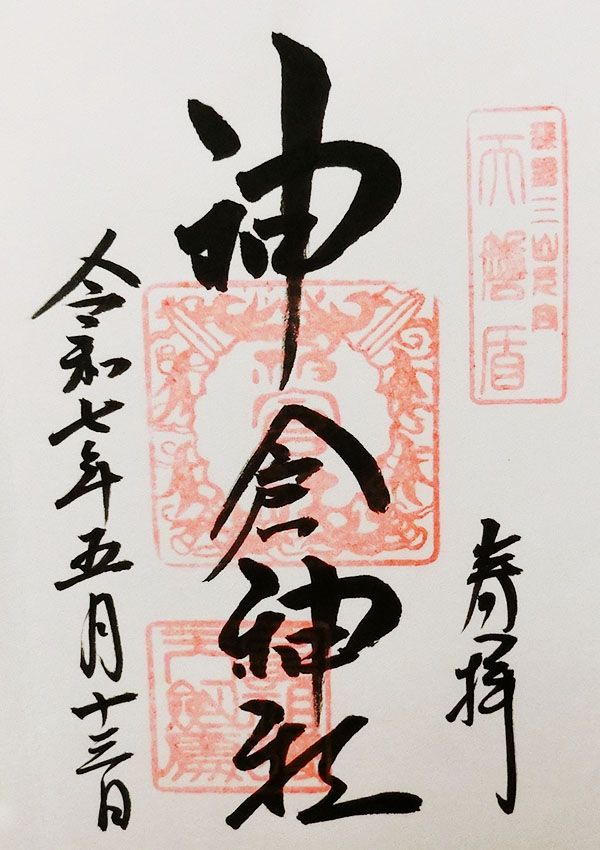 熊野三山元宮
天磐盾
奉拝
神倉神社
令和七年五月十三日